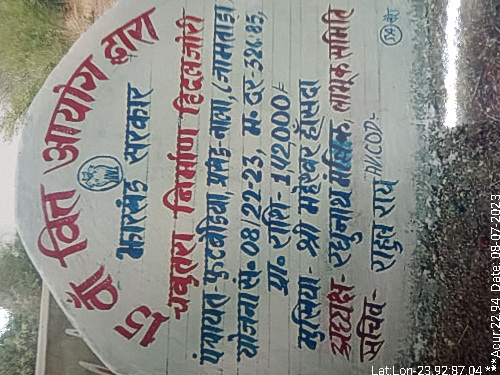 15 वाँ वित आयोग द्वारा
झारखंड सरकार
चबुतरा निर्माण हिदलजोरी
पंचायत- फुटबेड़िया, प्रखंड-नाला, (जामताड़ा)
योजना सं- 08/22-23, म० दर- 326.85,
प्रा० राशि- 1,42,000/-
मुखिया- श्री महेश्वर हाँसदा
अध्यक्ष- रघुनाथ मल्लिक, लाभुक समिति
सचिव- राहुल राय
Lat:Lon-23.92:87.04 **
**Acur:22.94 Date: 08-07-2023